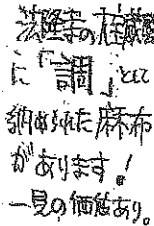 法隆寺の在庫蔵
に「調」として
納められた麻布
があります!
一見の価値あり。